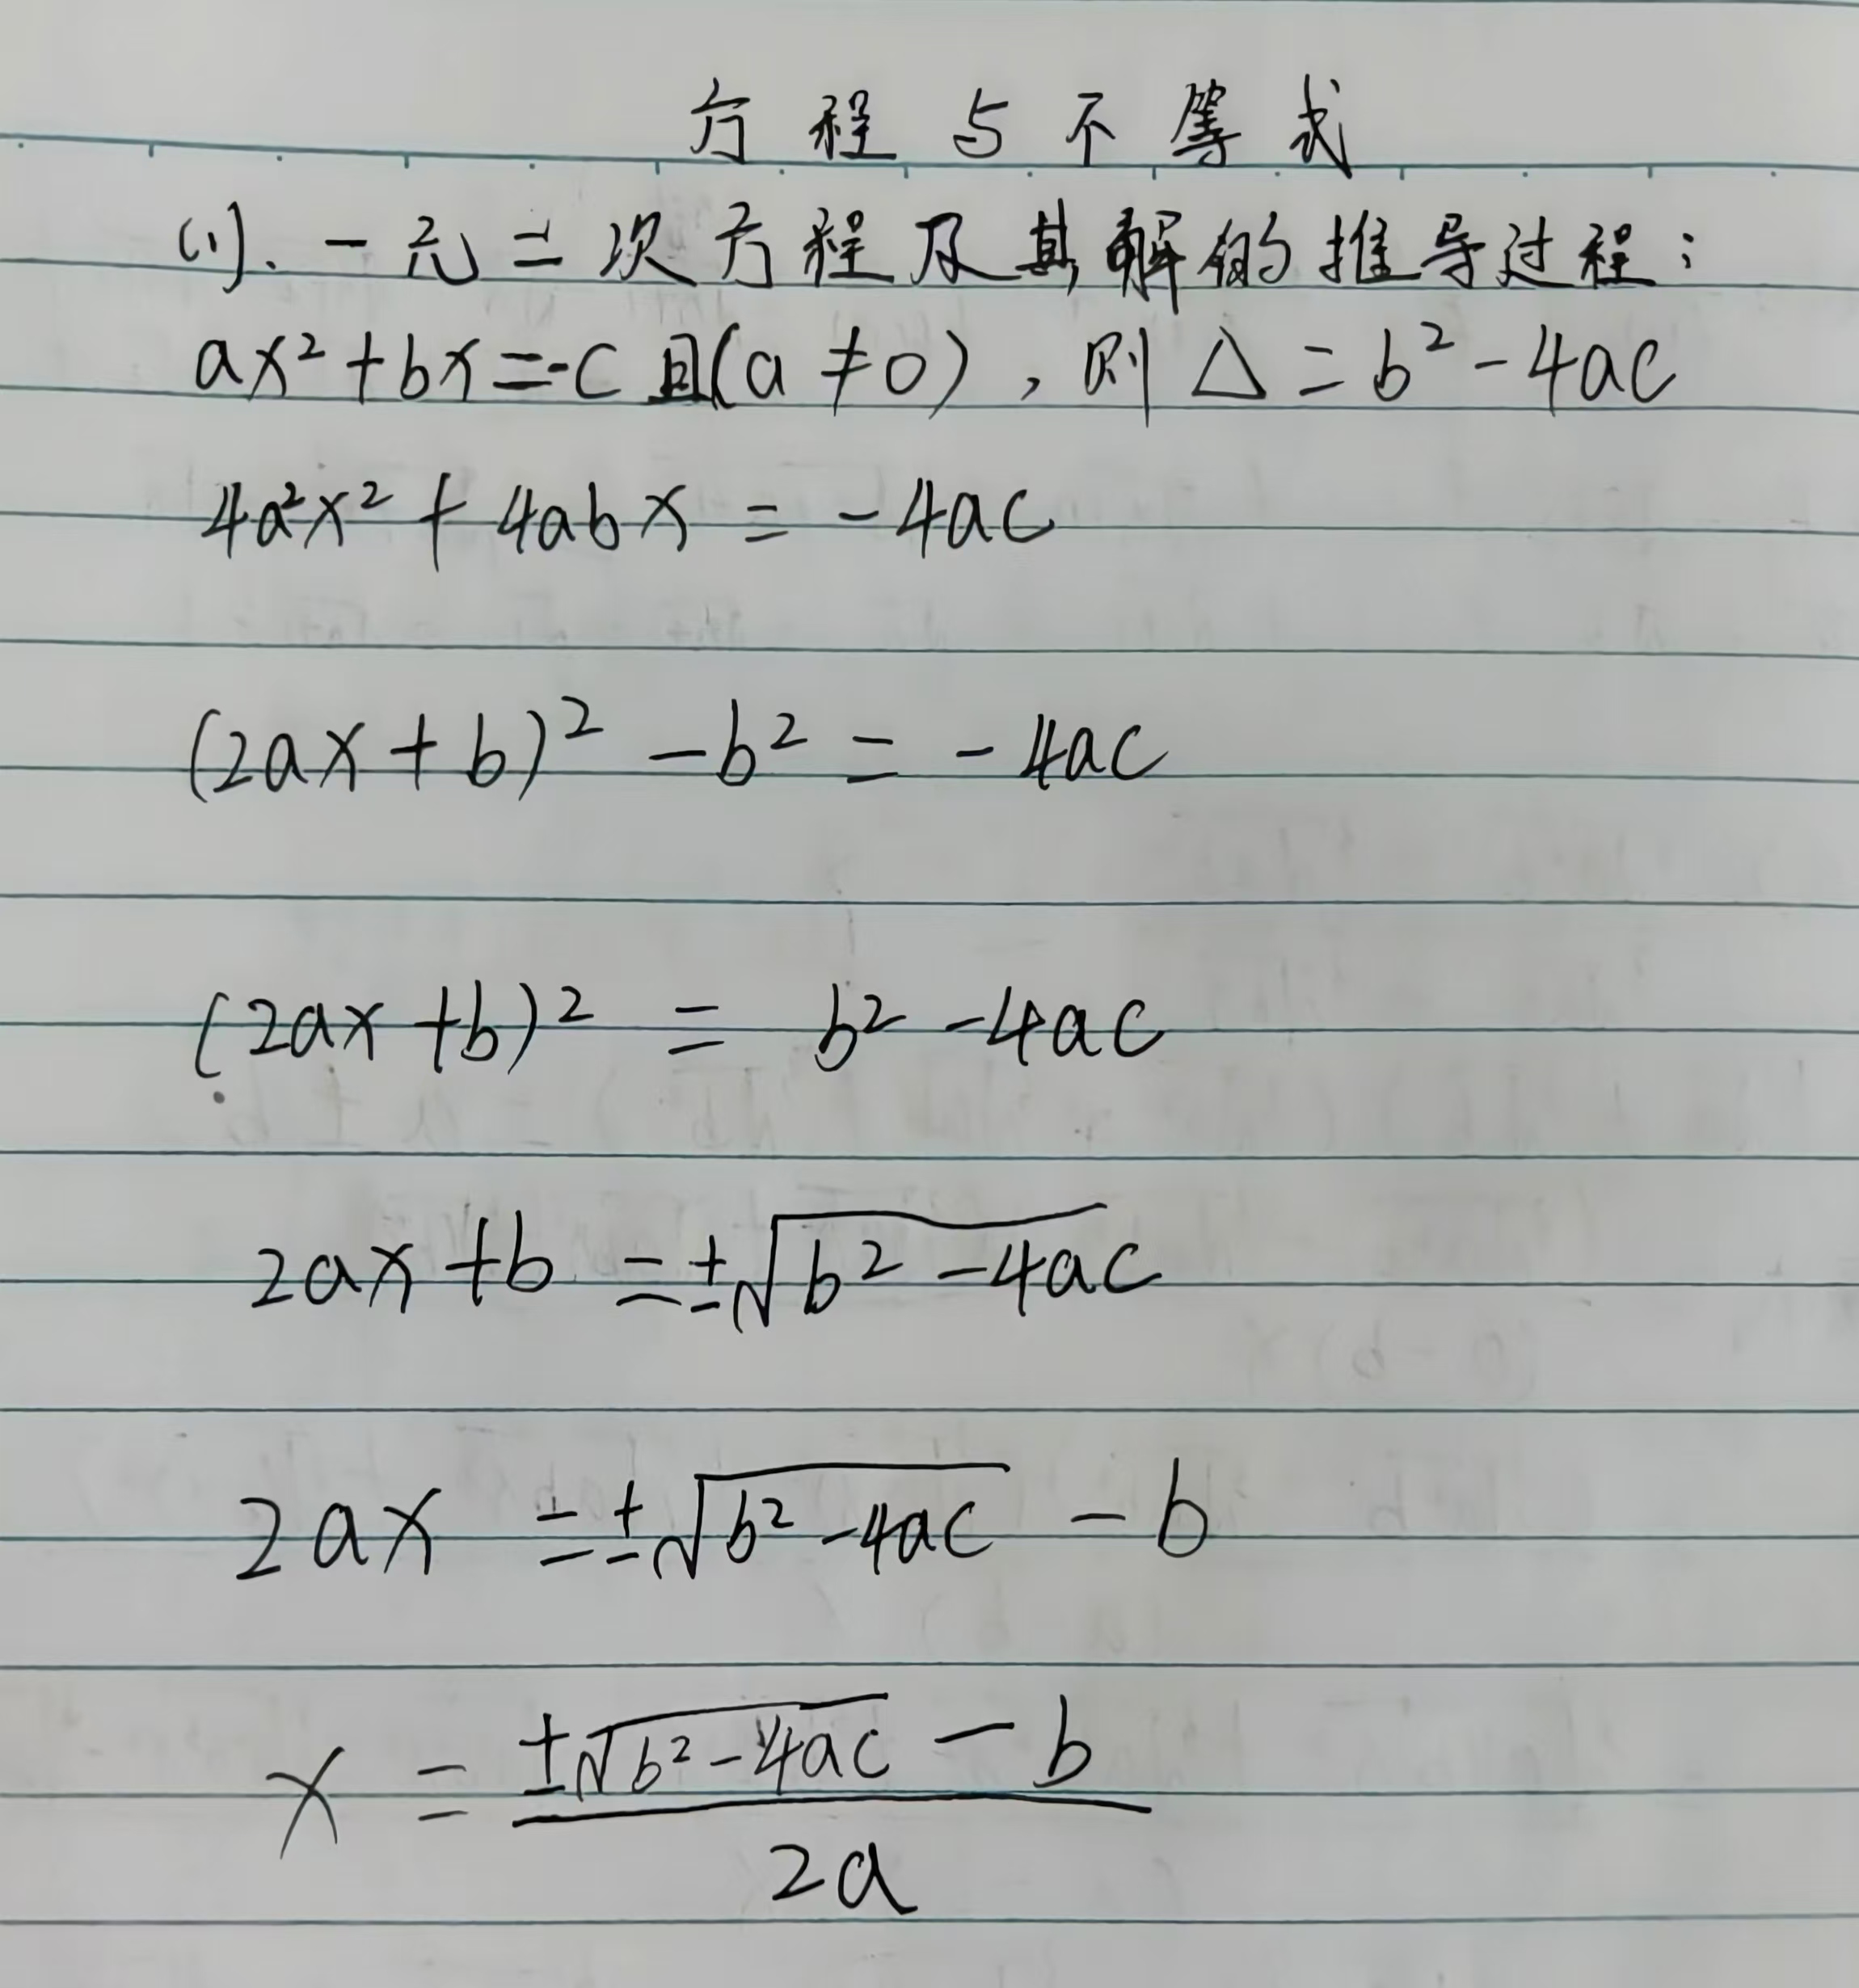 方程与不等式
(1). 一元二次方程及其解的推导过程:
ax²+bx=-c 且(a≠0), 则 △=b²-4ac
4a²x²+4abx=-4ac
(2ax+b)²-b²=-4ac
(2ax+b)²=b²-4ac
2ax+b=±√(b²-4ac)
2ax=±√(b²-4ac)-b
x=(±√(b²-4ac)-b)/2a